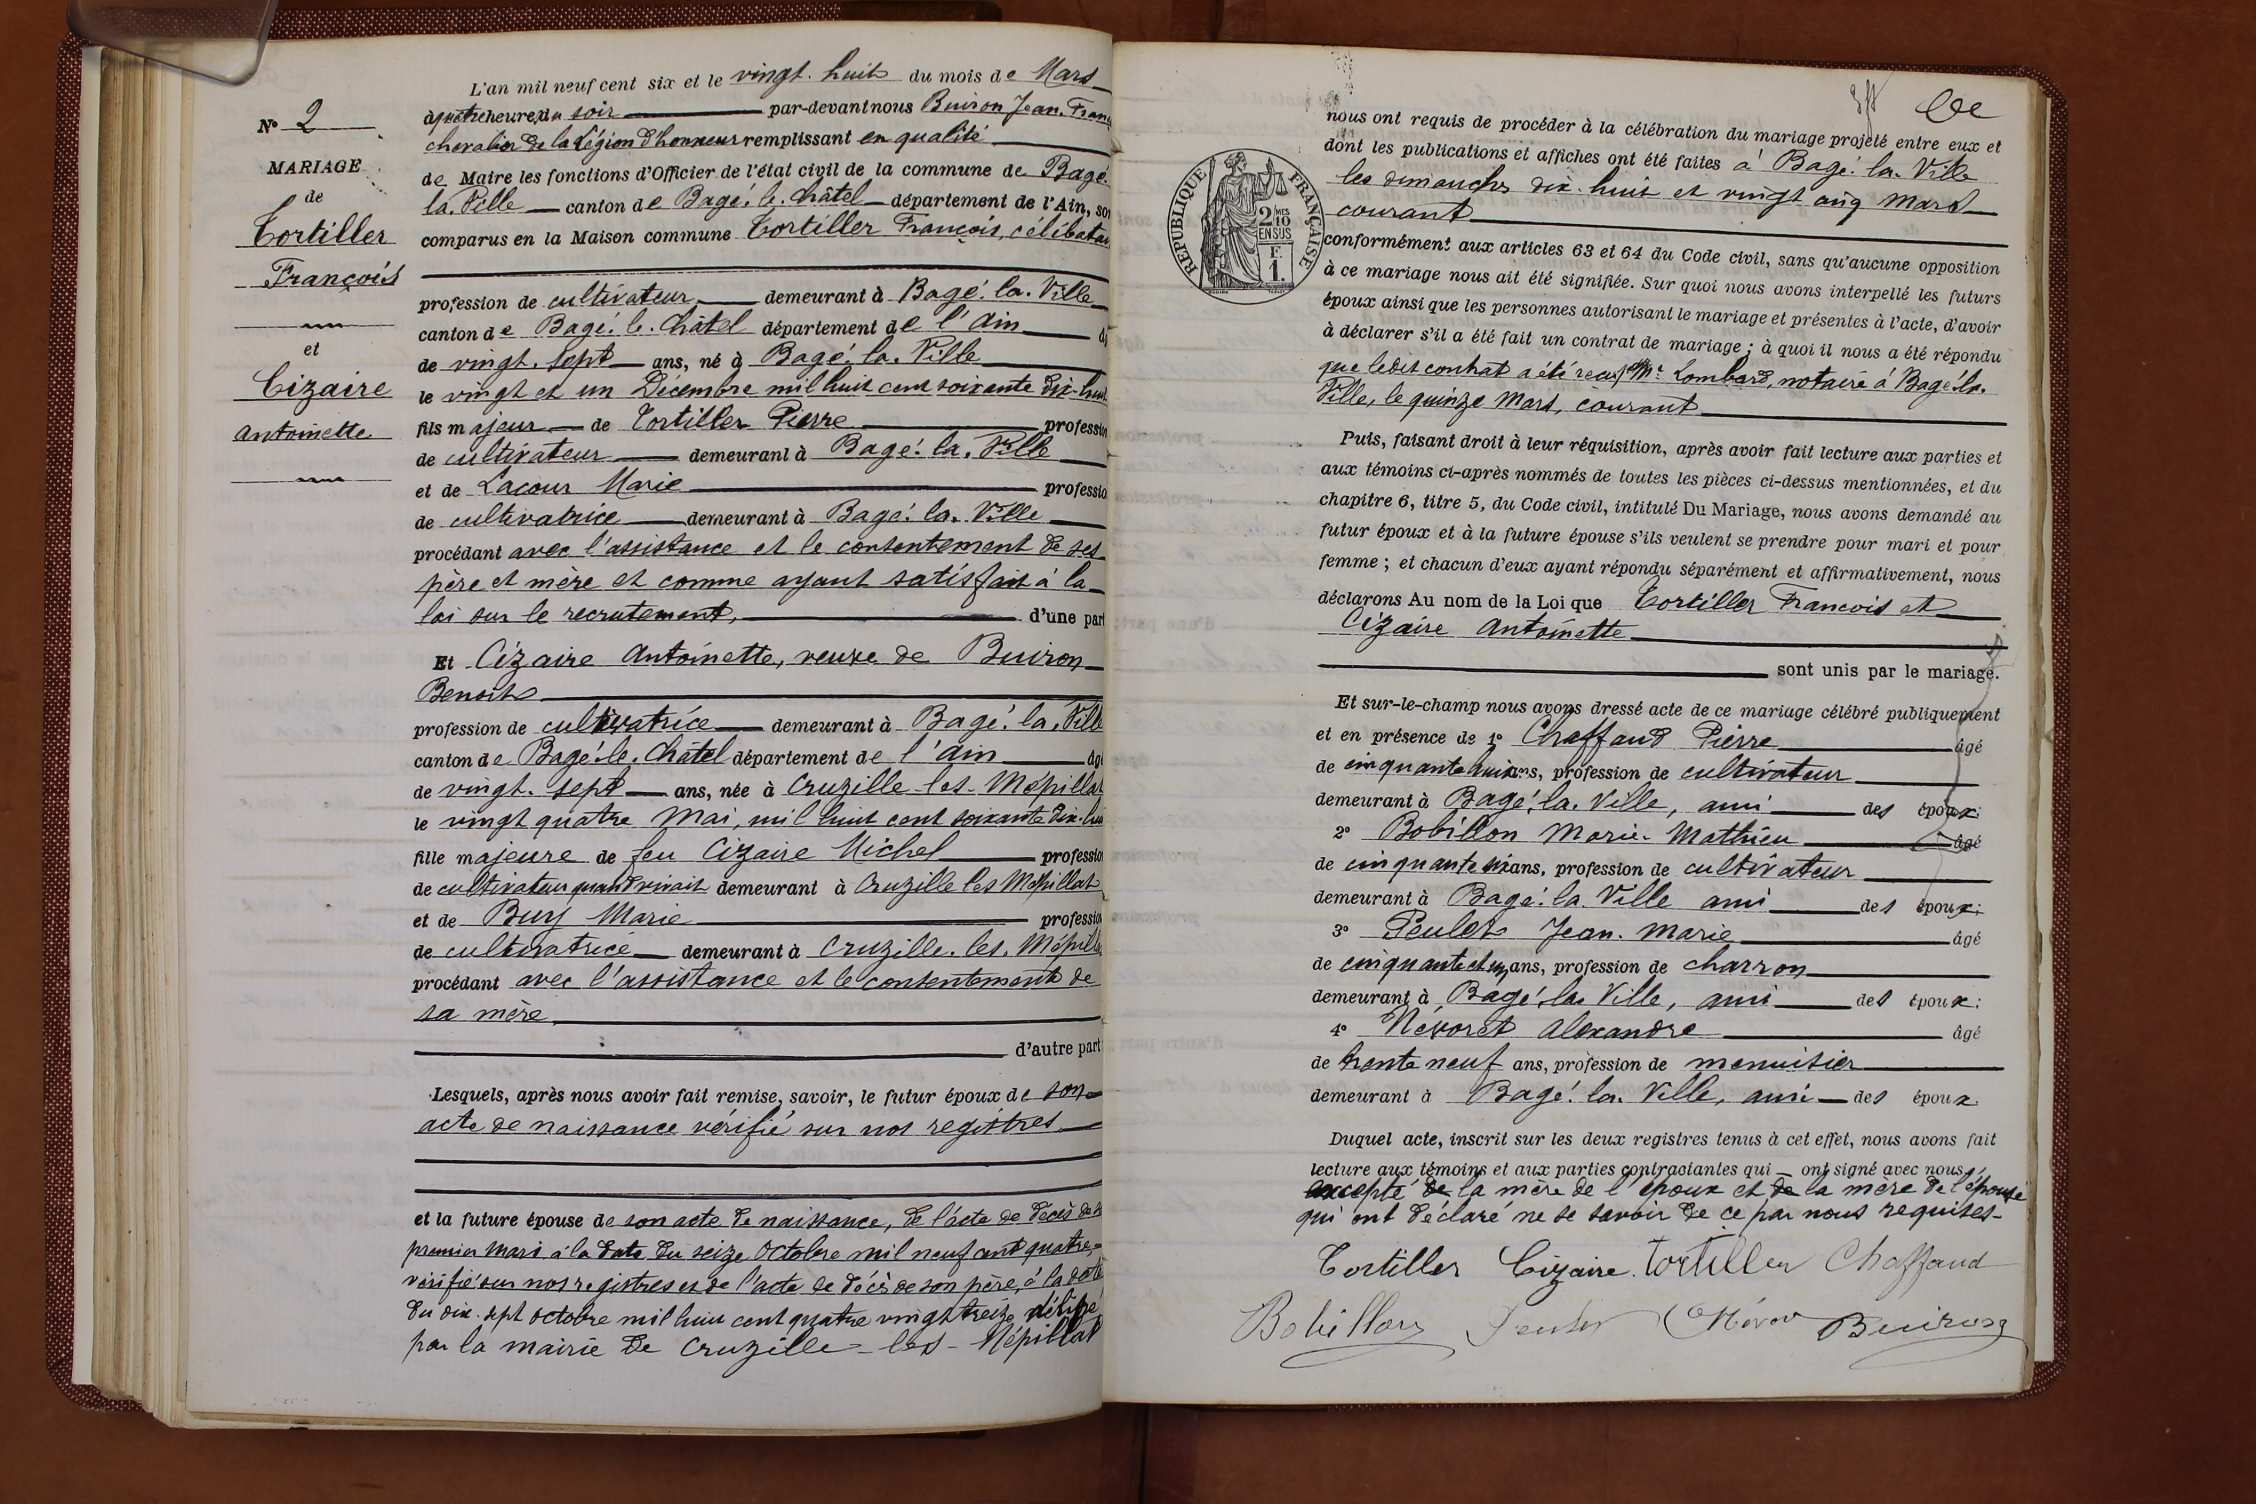 L'an mil neuf cent six et le vingt-huit du mois de Mars
à quatre heures du soir par-devant nous Buiron Jean. Fran
chevalier de la Légion d'honneur remplissant en qualité
de Maire les fonctions d'Officier de l'état civil de la commune de Bagé.
la. Ville canton de Bagé. le. Châtel département de l'Ain, son
comparus en la Maison commune Tortiller François, célibatai
profession de cultivateur demeurant à Bagé. la. Ville
canton de Bagé. le. Châtel département de l'Ain
de vingt. sept ans, né à Bagé. la. Ville
le vingt et un Décembre mil huit cent soixante dix-huit
fils majeur de Tortiller Pierre profession
de cultivateur demeurant à Bagé. la. Ville
et de Lacour Marie professio
de cultivatrice demeurant à Bagé. la. Ville
procédant avec l'assistance et le consentement de ses
père et mère et comme ayant satisfait à la
loi sur le recrutement, d'une part
Et Cizaire Antoinette, veuve de Buiron
Benoit
profession de cultivatrice demeurant à Bagé. la. Ville
canton de Bagé. le. Châtel département de l'Ain âgé
de vingt. sept ans, née à Cruzille-les-Mépillat
le vingt quatre Mai, mil huit cent soixante dix-hui
fille majeure de feu Cizaire Michel profession
de cultivateur quand vivait demeurant à Cruzille les Mépillat
et de Buy Marie profession
de cultivatrice demeurant à Cruzille. les. Mépilla
procédant avec l'assistance et le consentement de
sa mère
d'autre part
Lesquels, après nous avoir fait remise, savoir, le futur époux de son
acte de naissance vérifié sur nos registres
et la future épouse de son acte de naissance, de l'acte de décès de s
premier mari à la date du seize Octobre mil neuf cent quatre,
vérifié sur nos registres et de l'acte de décès de son père, à la date
du dix. sept octobre mil huit cent quatre vingt treize délivré
par la mairie de Cruzille-les-Mépillat
N° 2
MARIAGE
de
Tortiller
François
et
Cizaire
Antoinette
nous ont requis de procéder à la célébration du mariage projeté entre eux et
dont les publications et affiches ont été faites à Bagé. la. Ville
les dimanches dix. huit et vingt cinq Mars
courant
RÉPUBLIQUE FRANÇAISE
2 MES
10
EN SUS
F.
1.
conformément aux articles 63 et 64 du Code civil, sans qu'aucune opposition
à ce mariage nous ait été signifiée. Sur quoi nous avons interpellé les futurs
époux ainsi que les personnes autorisant le mariage et présentes à l'acte, d'avoir
à déclarer s'il a été fait un contrat de mariage ; à quoi il nous a été répondu
que ledit contrat a été reçu p. Me Lombard, notaire à Bagé. la.
Ville, le quinze Mars, courant
Puis, faisant droit à leur réquisition, après avoir fait lecture aux parties et
aux témoins ci-après nommés de toutes les pièces ci-dessus mentionnées, et du
chapitre 6, titre 5, du Code civil, intitulé Du Mariage, nous avons demandé au
futur époux et à la future épouse s'ils veulent se prendre pour mari et pour
femme ; et chacun d'eux ayant répondu séparément et affirmativement, nous
déclarons Au nom de la Loi que Tortiller Francois et
Cizaire Antoinette
sont unis par le mariage.
Et sur-le-champ nous avons dressé acte de ce mariage célébré publiquement
et en présence de 1° Chaffaud Pierre âgé
de cinquante huit ans, profession de cultivateur
demeurant à Bagé. la. Ville, ami des époux;
2° Bobillon Marie-Mathieu âgé
de cinquante six ans, profession de cultivateur
demeurant à Bagé. la. Ville ami des époux;
3° Peulet Jean. Marie âgé
de cinquante et un ans, profession de charron
demeurant à Bagé. la. Ville, ami des époux;
4° Névoret Alexandre âgé
de trente neuf ans, profession de menuisier
demeurant à Bagé. la. Ville, ami des époux.
Duquel acte, inscrit sur les deux registres tenus à cet effet, nous avons fait
lecture aux témoins et aux parties contractantes qui ont signé avec nous,
excepté de la mère de l'époux et de la mère de l'épouse
qui ont déclaré ne le savoir de ce par nous requises
Tortiller Cizaire. Tortiller Chaffaud
Bobillon Peulet Névoret Buiron